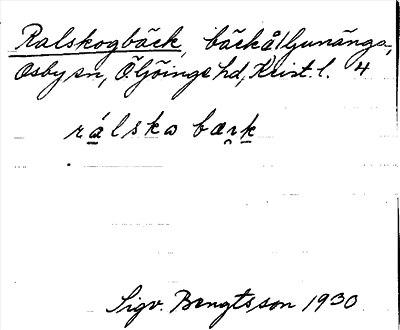 Ralskogbäck, bäckå ljunänga,
Osby sn, Ö Göinge hd, Krist. l. 4
rálska bærk
Sigv. Bengtsson 1930